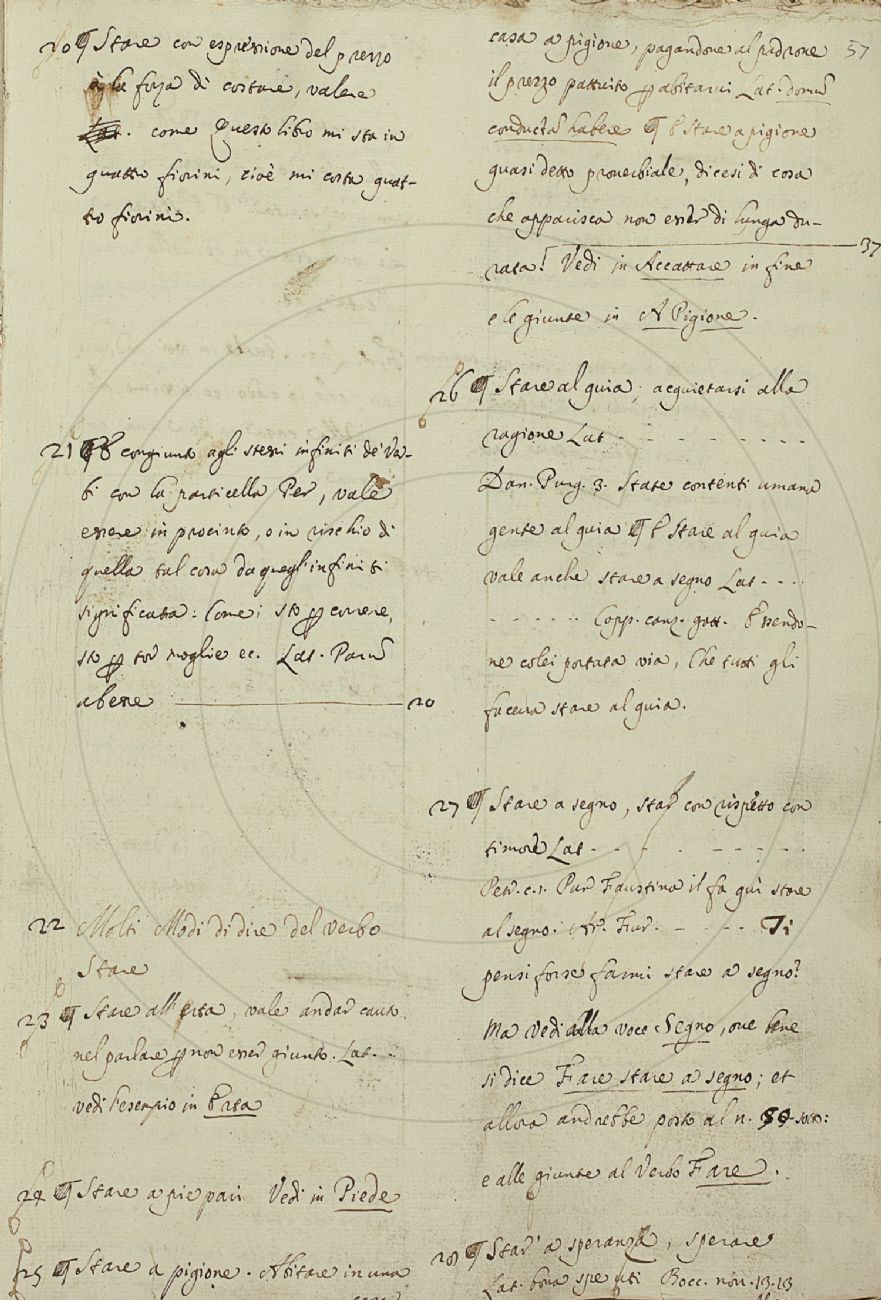 20 ¶ Stare con espressione del prezzo
à la forza di costare, valere
Lat. come Questo libro mi sta in
quattro fiorini, cioè mi costa quat-
tro fiorini.
21 ¶ E congiunto agli stessi infiniti de' Ver-
bi con la particella Per, vale
essere in procinto, o in rischio di
quella tal cosa da quegl'infiniti
significata: Come; sto ꝑ correre,
sto ꝑ tor moglie ec. Lat. Parū
abesse 20
22 Molti Modi di dire del verbo
Stare
23 ¶ Stare all'erta, vale andar cauto
nel parlare ꝑ non esser giunto. Lat. . .
vedi l'esempio in Erta
24 ¶ Stare a piè pari Vedi in Piede
25 ¶ Stare a pigione. Abitare in una
57
casa a pigione, pagandone al padrone
il prezzo pattuito ꝑ abitarvi Lat. domū
conductā habere ¶ E Stare a pigione
quasi detto proverbiale, dicesi di cosa
che apparisca non esser di lunga du-
37
rata! Vedi in Accattare in fine
e le giunte in A Pigione.
26 ¶ Stare al quia, acquietarsi alla
ragione Lat - - - - - - - - -
Dan. Purg. 3. State contenti umana
gente al quia ¶ E Stare al quia
vale anche stare a segno Lat - - - -
- - - - - - Copp. canz. gatt. Essendo-
ne colei portata via, Che tutti gli
faceva stare al quia.
27 ¶ Stare a segno, star con rispetto con
timore Lat - - - - - - - - -
Petr. c. 1. Pur Faustina il fa qui stare
al segno. Ar. Fur. - - - - - Ti
pensi forse farmi stare a segno?
Ma vedi alla voce Segno, ove bene
si dice Fare stare a segno; et
allora andrebbe posto al n. sotto:
e alle giunte al Verbo Fare.
28 ¶ Star' a speranza, sperare
Lat. bona spe uti Bocc. nov. 13.13